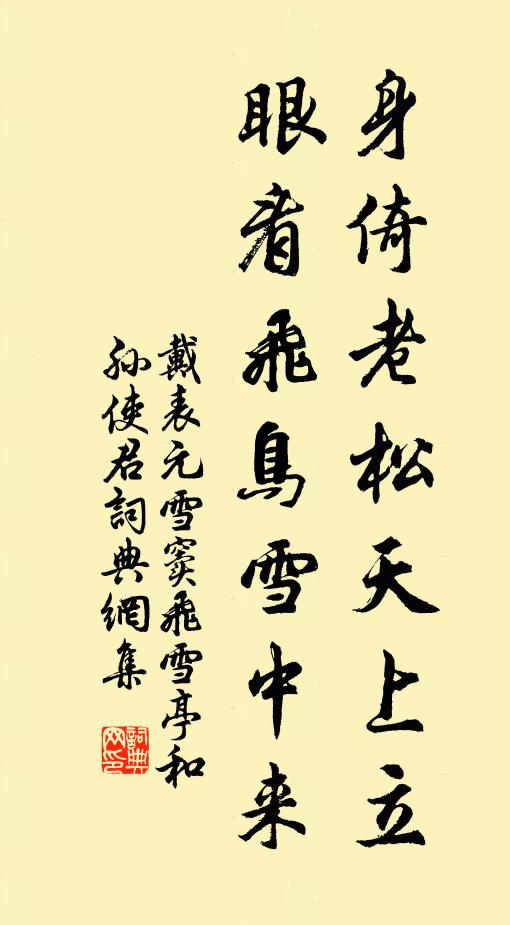 身倚老松天上立
眼看飛鳥雪中来
戴表元雪竇飛雪亭和
孙使君詞典網集
詞典网印